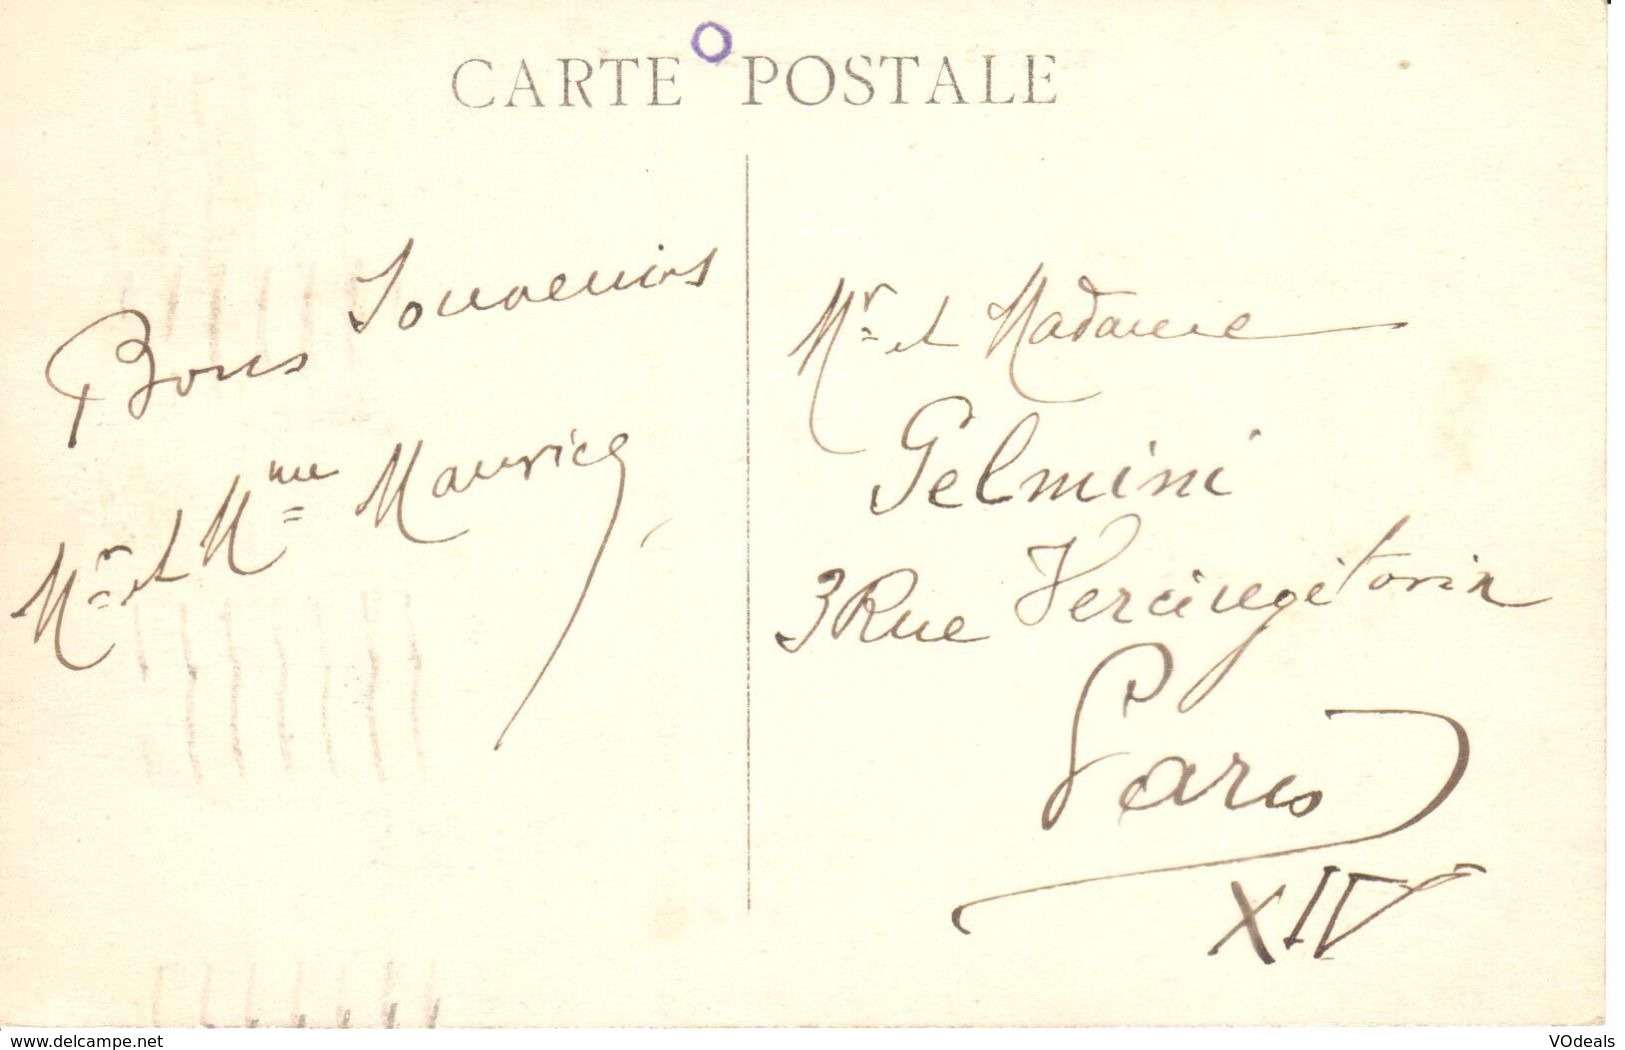 CARTE POSTALE
Bons Souvenirs
Mr et Mme Maurice
Mr et Madame
Gelmini
3 Rue Vercingétorix
Paris
XIV
www.delcampe.net
VOdeals